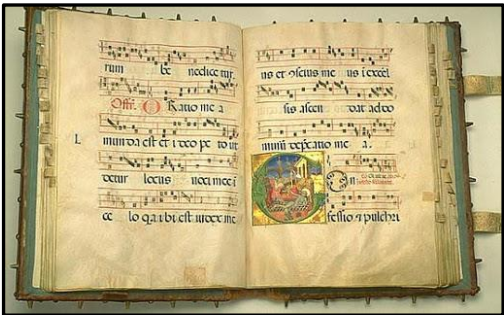 rum be nedice tur.
Off. O Ratio me a
L
munda est et i deo pe to ut
detur locus uoci mee i
ce lo qa ibi est iudex me
us et ꝯscius me us i excel
sis ascen dat ad do
minū depcatio me a.
C n
fessio ⁊ pulchri